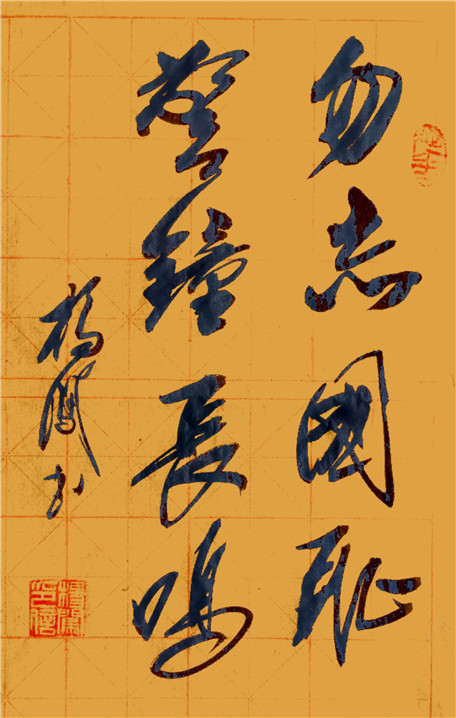 勿忘國恥
警鐘長鳴
楊書